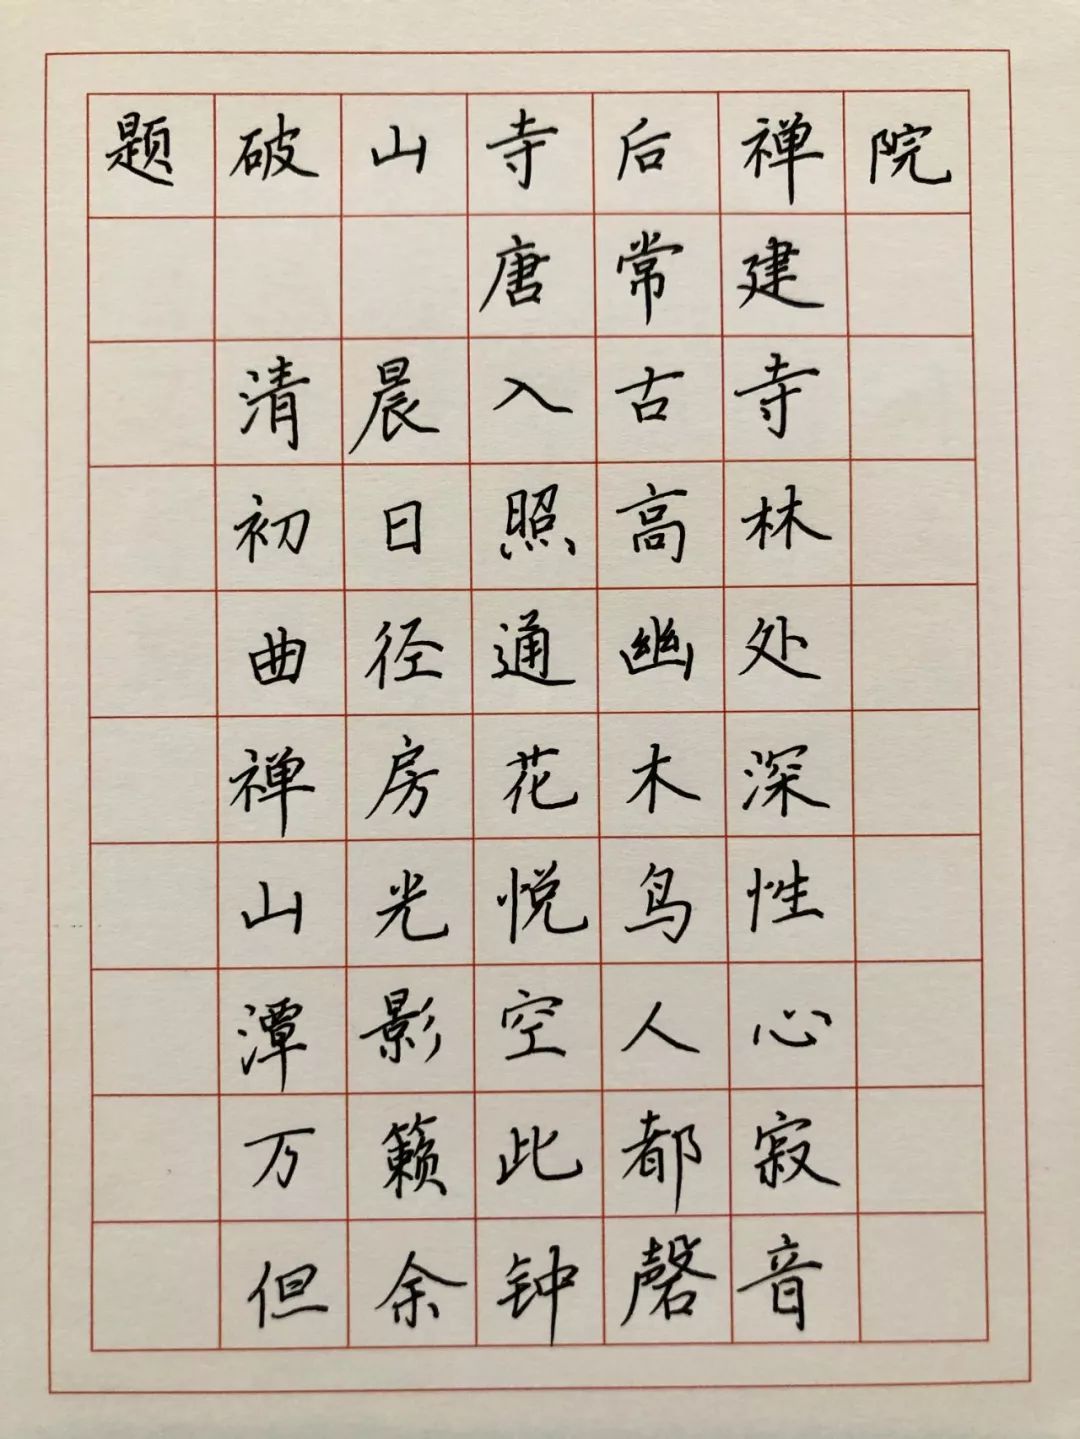 题破山寺后禅院
唐常建
清晨入古寺
初日照高林
曲径通幽处
禅房花木深
山光悦鸟性
潭影空人心
万籁此都寂
但余钟磬音